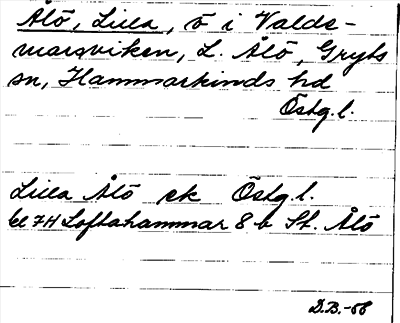 Ålö, Lilla, ö i Valde-
marsviken, L. Ålö, Gryts
sn, Hammarkinds hd
Östg.l.
Lilla Ålö ek Östg.l.
bl 7H Loftahammar 8 b St. Ålö
D.B.-66